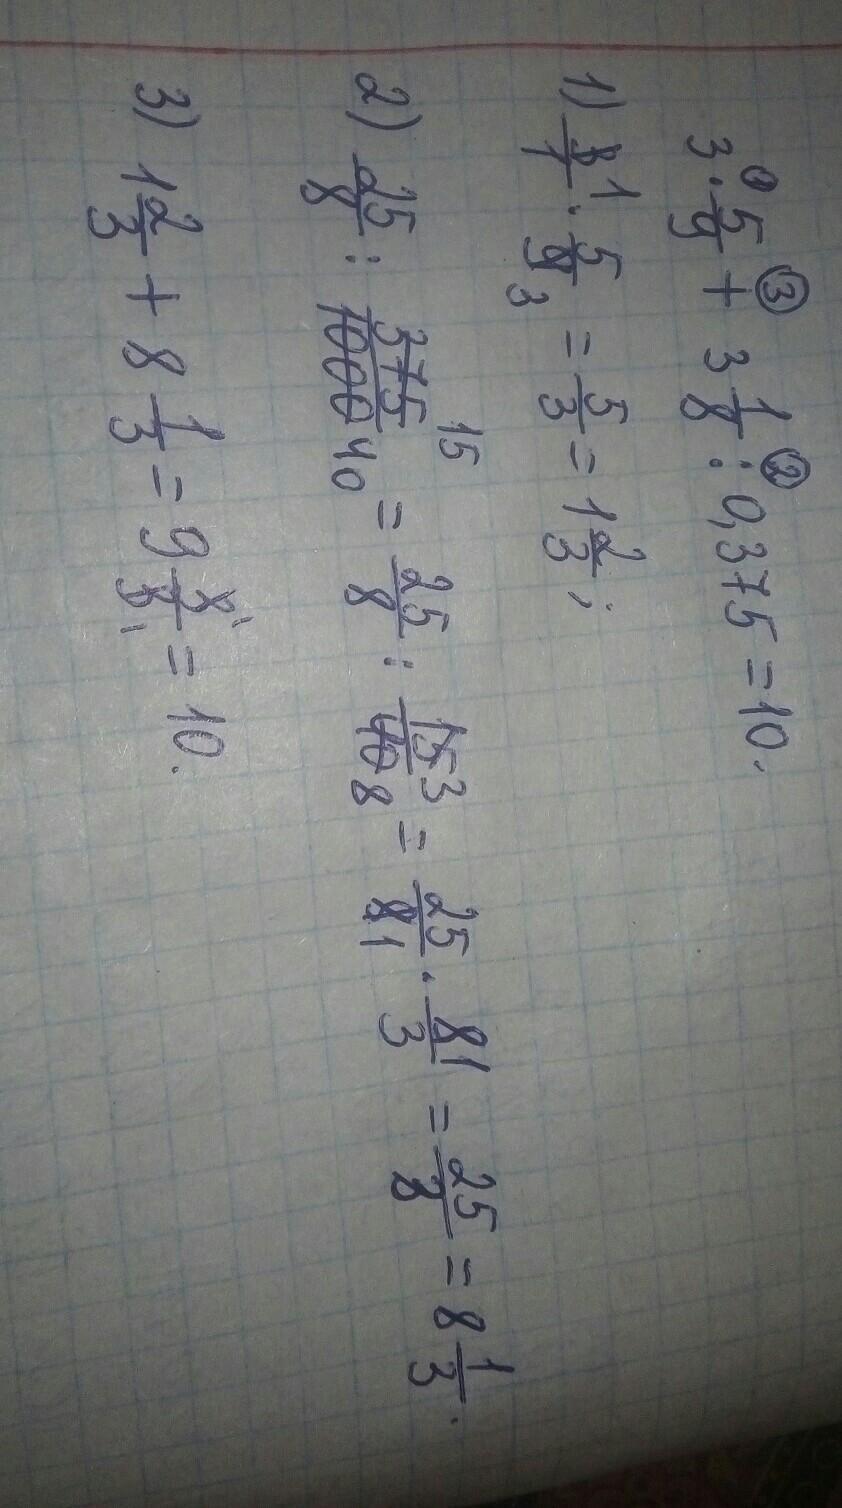 3 · 5/9 + 3 1/8 : 0,375 = 10.
1) 3/1 · 5/9 = 5/3 = 1 2/3 ;
2) 25/8 : 375/1000 = 25/8 : 15/40 = 25/8 · 8/3 = 25/3 = 8 1/3 .
3) 1 2/3 + 8 1/3 = 9 3/3 = 10.